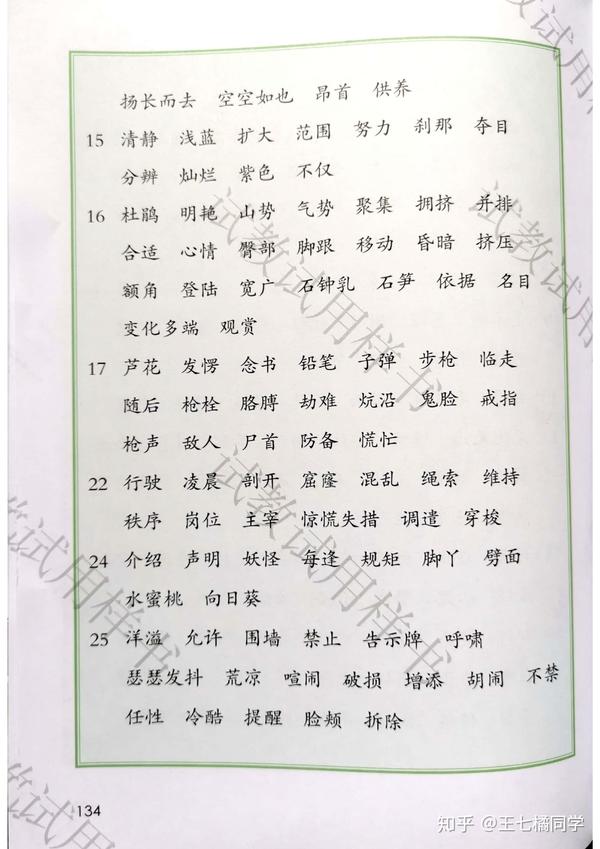 扬长而去 空空如也 昂首 供养
15 清静 浅蓝 扩大 范围 努力 刹那 夺目
分辨 灿烂 紫色 不仅
16 杜鹃 明艳 山势 气势 聚集 拥挤 并排
合适 心情 臀部 脚跟 移动 昏暗 挤压
额角 登陆 宽广 石钟乳 石笋 依据 名目
变化多端 观赏
17 芦花 发愣 念书 铅笔 子弹 步枪 临走
随后 枪栓 胳膊 劫难 炕沿 鬼脸 戒指
枪声 敌人 尸首 防备 慌忙
22 行驶 凌晨 剖开 窟窿 混乱 绳索 维持
秩序 岗位 主宰 惊慌失措 调遣 穿梭
24 介绍 声明 妖怪 每逢 规矩 脚丫 劈面
水蜜桃 向日葵
25 洋溢 允许 围墙 禁止 告示牌 呼啸
瑟瑟发抖 荒凉 喧闹 破损 增添 胡闹 不禁
任性 冷酷 提醒 脸颊 拆除
134
试教试用样书
试教试用样书
试教试用样书
试教试用样书
知乎 @王七橘同学